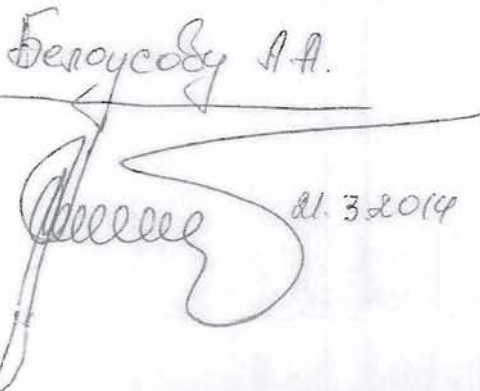 Белоусову А.А.
21.3.2014